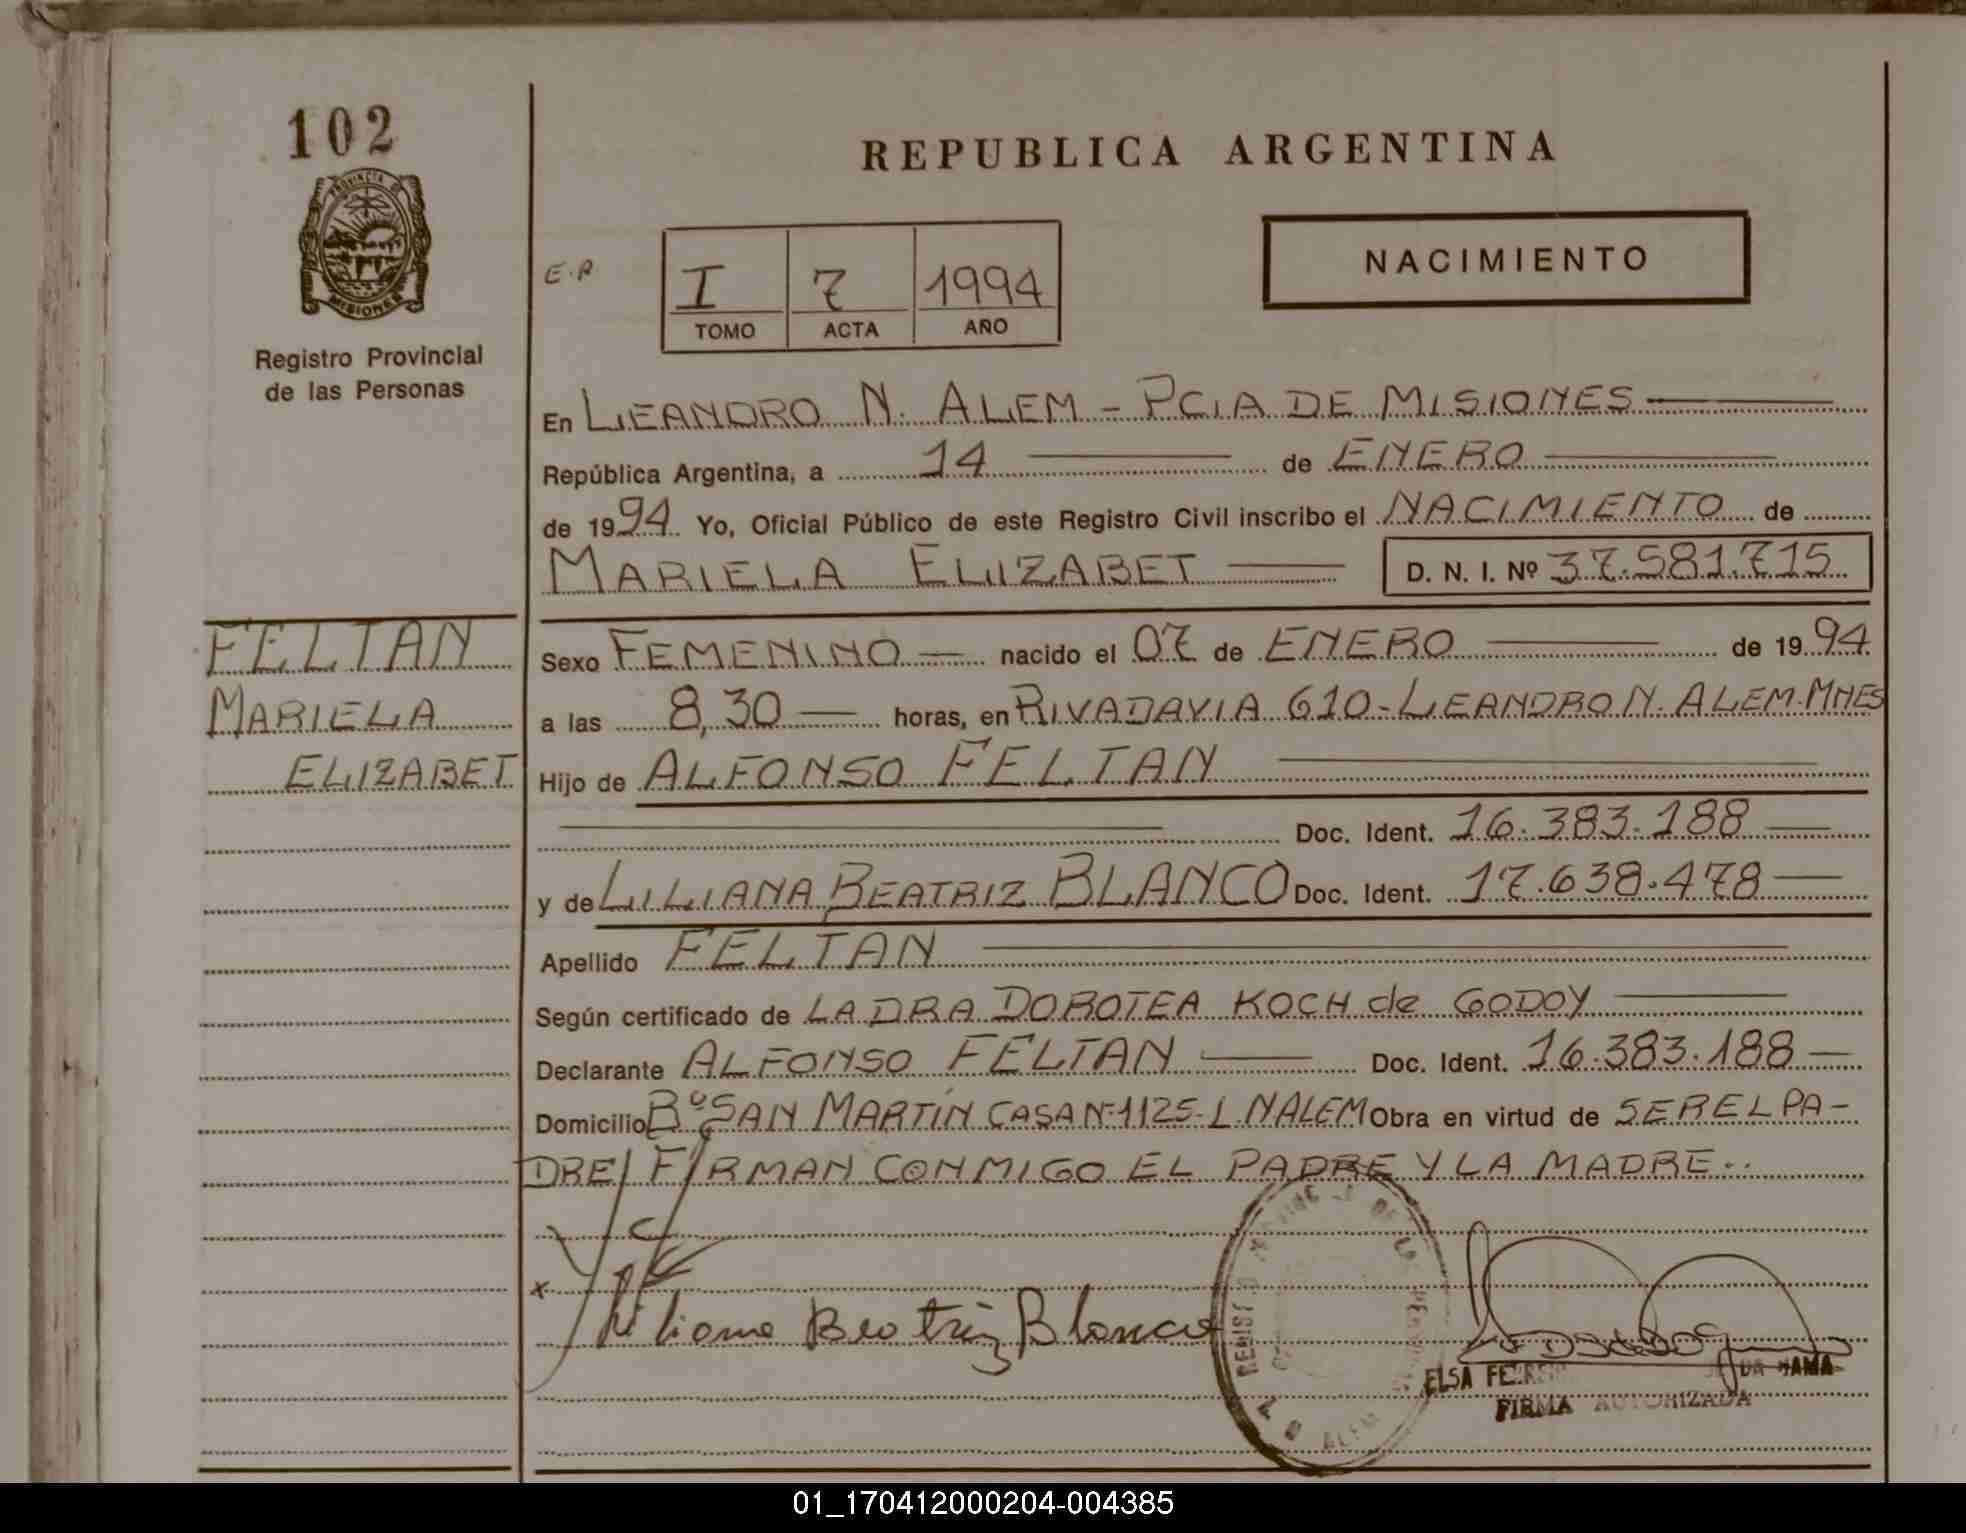 102
PROVINCIA DE
MISIONES
Registro Provincial
de las Personas
REPUBLICA ARGENTINA
NACIMIENTO
E.R
I 7 1994
TOMO ACTA AÑO
En LEANDRO N. ALEM - PCIA DE MISIONES
República Argentina, a 14 de ENERO
de 1994 Yo, Oficial Público de este Registro Civil inscribo el NACIMIENTO de
MARIELA ELIZABET D. N. I. Nº 37.581.715
FELTAN
MARIELA
ELIZABET
Sexo FEMENINO nacido el 07 de ENERO de 1994
a las 8,30 horas, en RIVADAVIA 610-LEANDRO N. ALEM-MNES
Hijo de ALFONSO FELTAN
Doc. Ident. 16.383.188
y de LILIANA BEATRIZ BLANCO Doc. Ident. 17.638.478
Apellido FELTAN
Según certificado de LA DRA DOROTEA KOCH de GODOY
Declarante ALFONSO FELTAN Doc. Ident. 16.383.188
Domicilio Bº SAN MARTÍN CASA Nº 1125-L.N ALEM Obra en virtud de SER EL PA-
DRE/ FIRMAN CONMIGO EL PADRE Y LA MADRE..
x
Liliana Beatriz Blanco
DE LAS
ALEM
ELSA DA GAMA
FIRMA AUTORIZADA
01_170412000204-004385